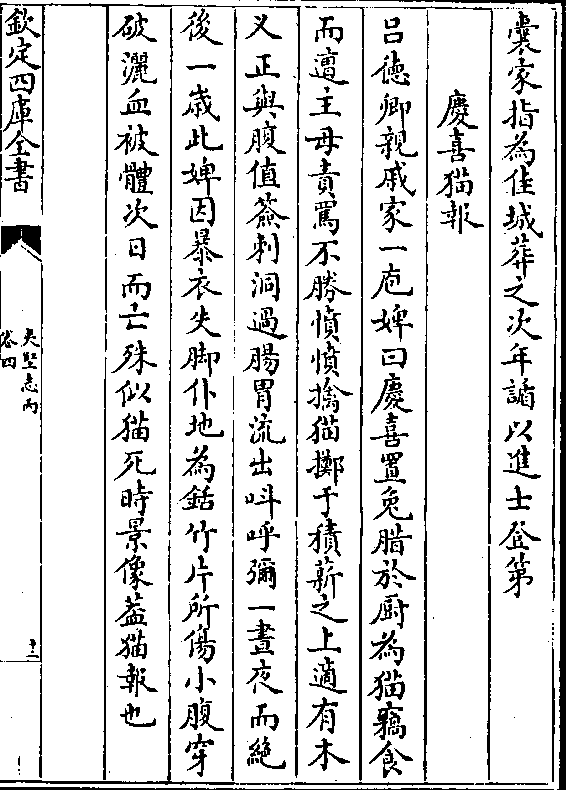 裳家指為佳城葬之次年謫以進士登第
慶喜猫報
呂徳卿親戚家一庖婢曰慶喜置兔腊於厨為猫竊食
而遭主母責罵不勝憤憤擒猫擲于積薪之上適有木
义正與腹值簽刺洞過腸胃流出呌呼彌一晝夜而絶
後一歳此婢因暴衣失脚仆地為銛竹片所傷小腹穿
破灑血被體次日而亡殊似猫死時景像葢猫報也
欽定四庫全書
夷堅志丙
卷四
十二